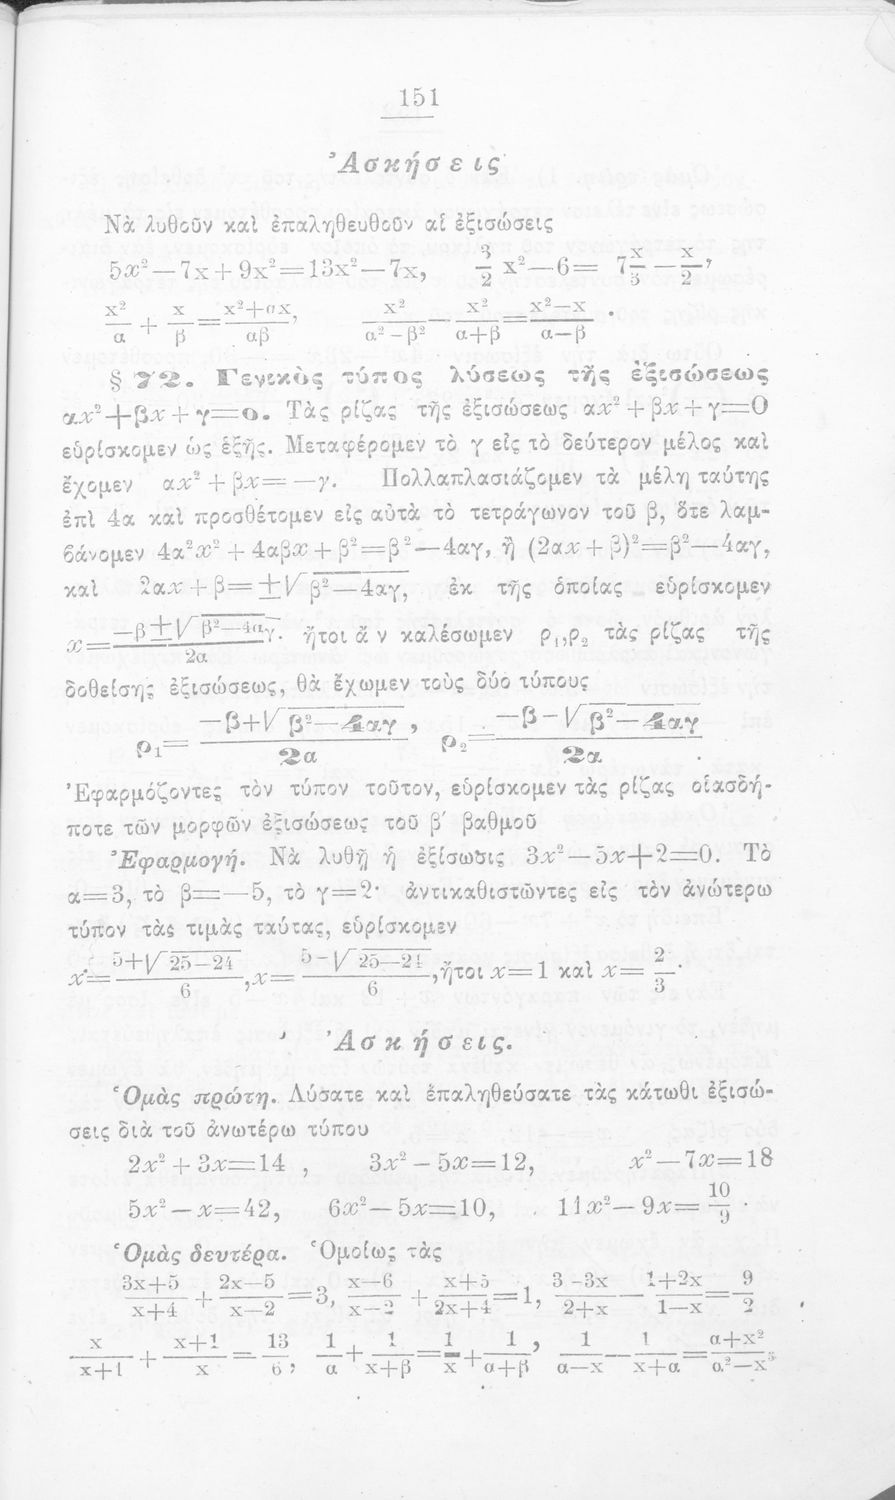 151
Ἀσκήσεις
Νὰ λυθοῦν καὶ ἐπαληθευθοῦν αἱ ἐξισώσεις
5x²—7x+9x²=13x²—7x, 3/2 x²—6= 7 x/3 — x/2,
x²/α + x/β = x²+αx/αβ, x²/α²-β² — x²/α+β = x²—x/α—β .
§ 72. Γενικὸς τύπος λύσεως τῆς ἐξισώσεως
αx²+βx+γ=0. Τὰς ρίζας τῆς ἐξισώσεως αx²+βx+γ=0
εὑρίσκομεν ὡς ἑξῆς. Μεταφέρομεν τὸ γ εἰς τὸ δεύτερον μέλος καὶ
ἔχομεν αx²+βx=—γ. Πολλαπλασιάζομεν τὰ μέλη ταύτης
ἐπὶ 4α καὶ προσθέτομεν εἰς αὐτὰ τὸ τετράγωνον τοῦ β, ὅτε λαμ-
βάνομεν 4α²x²+4αβx+β²=β²—4αγ, ἢ (2αx+β)²=β²—4αγ,
καὶ 2αx+β=±√β²—4αγ, ἐκ τῆς ὁποίας εὑρίσκομεν
x= —β±√β²—4αγ/2α. ἤτοι ἄν καλέσωμεν ρ₁,ρ₂ τὰς ρίζας τῆς
δοθείσης ἐξισώσεως, θὰ ἔχωμεν τοὺς δύο τύπους
ρ₁= —β+√β²—4αγ/2α , ρ₂= —β-√β²—4αγ/2α .
Ἐφαρμόζοντες τὸν τύπον τοῦτον, εὑρίσκομεν τὰς ρίζας οἱασδή-
ποτε τῶν μορφῶν ἐξισώσεως τοῦ β′ βαθμοῦ
Ἐφαρμογή. Νὰ λυθῇ ἡ ἐξίσωσις 3x²—5x+2=0. Τὸ
α=3, τὸ β=—5, τὸ γ=2· ἀντικαθιστῶντες εἰς τὸν ἀνώτερω
τύπον τὰς τιμὰς ταύτας, εὑρίσκομεν
x= 5+√25—24/6 ,x= 5-√25—24/6 ,ἤτοι x=1 καὶ x= 2/3 .
Ἀσκήσεις.
Ὁμὰς πρώτη. Λύσατε καὶ ἐπαληθεύσατε τὰς κάτωθι ἐξισώ-
σεις διὰ τοῦ ἀνωτέρω τύπου
2x²+3x=14 , 3x²-5x=12, x²—7x=18
5x²-x=42, 6x²-5x=10, 11x²—9x= 10/9 .
Ὁμὰς δευτέρα. Ὁμοίως τὰς
3x+5/x+4 + 2x-5/x—2 =3, x—6/x—2 + x+5/2x+4 =1, 3-3x/2+x — 1+2x/1—x = 9/2
x/x+1 + x+1/x = 13/6 , 1/α + 1/x+β = 1/x + 1/α+β , 1/α—x — 1/x+α = α+x²/α²—x²